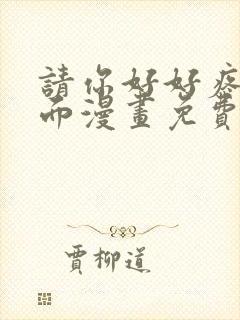 請你好好疼
而漫畫免費
賈柳道